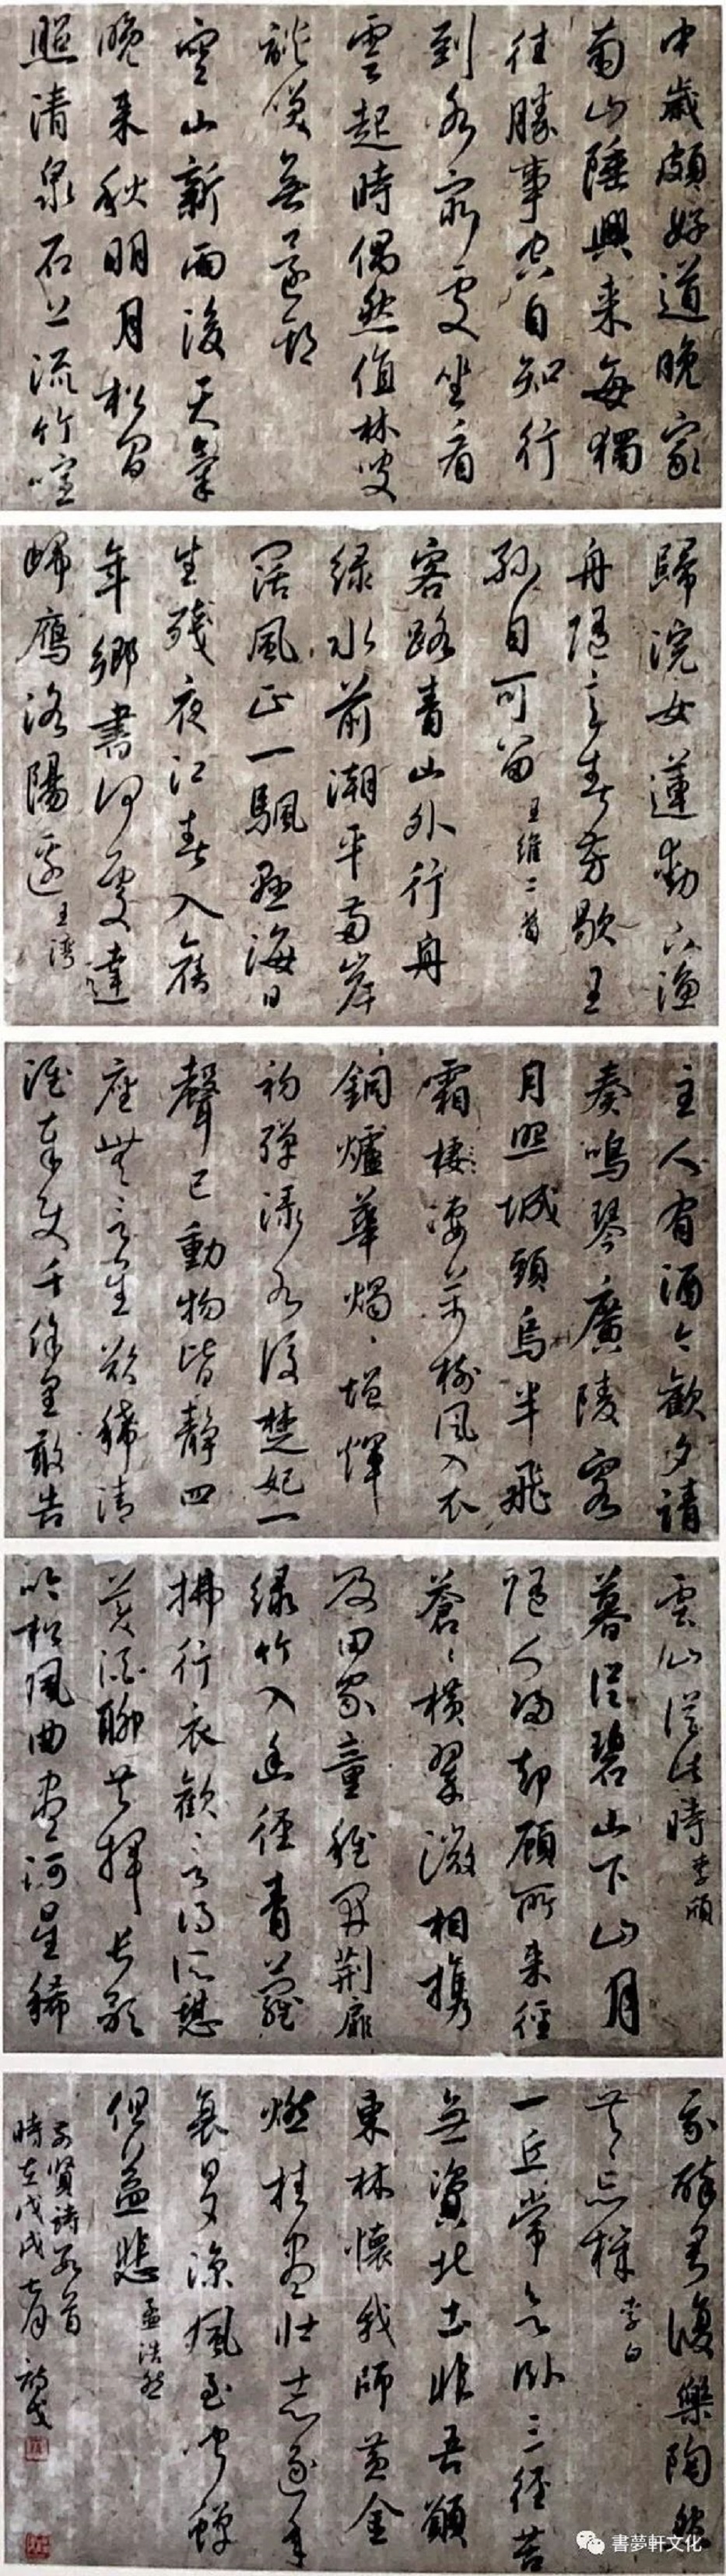 中歲頗好道晚家
南山陲興来每獨
往勝事空自知行
到水窮處坐看
雲起時偶然值林叟
談笑無還期
空山新雨後天氣
晚来秋明月松間
照清泉石上流竹喧
歸浣女蓮動下漁
舟隨意春芳歇王
孫自可留 王維二首
客路青山外行舟
綠水前潮平兩岸
闊風正一颿懸海日
生殘夜江春入舊
年鄉書何處達
歸鴈洛陽邊 王灣
主人有酒今歡夕請
奏鳴琴廣陵客
月照城頭烏半飛
霜棲淒萬樹風入衣
銅爐華燭燭增輝
初彈淥水後楚妃一
聲已動物皆靜四
座無言星欲稀清
淮奉使千餘里敢告
雲山從此時 李頎
暮從碧山下山月
隨人歸却顧所来徑
蒼蒼橫翠微相攜
及田家童稚開荊扉
綠竹入幽徑青蘿
拂行衣歡言得所憩
美酒聊共揮長歌
吟松風曲盡河星稀
我醉君復樂陶然
共忘機 李白
一丘常欲臥三徑苦
無資北土非吾願
東林懷我師黃金
燃桂盡壯志逐年
衰日夕涼風至聞蟬
但益悲 孟浩然
前賢詩五首
時在戊戌
書夢軒文化